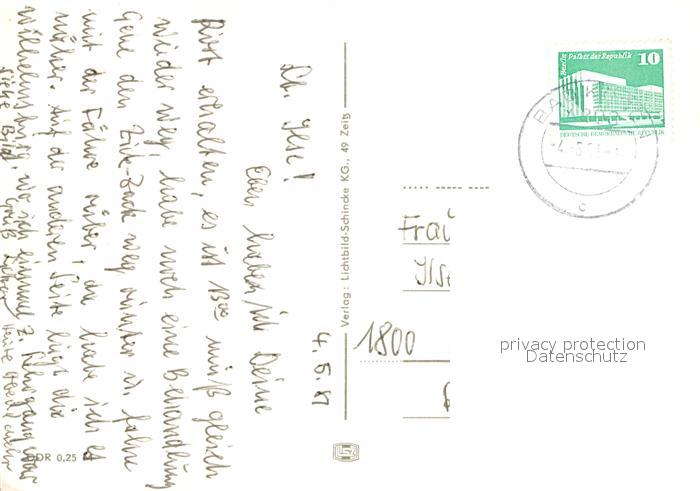 4.5.81
Lb. Ilse!
Eben habe ich Deine
Post erhalten, es ist 13°° muß gleich
wieder weg, habe noch eine Behandlung
Gehe den Zik-Zack weg runter u. fahre
mit der Fähre rüber, da habe ich es
näher. Auf der anderen Seite liegt die
Wilhelmsburg, wo ich einmal z. war
Siehe Bild Gruß Heute Abend mehr
DDR 0,25 M
Verlag: Lichtbild-Schincke KG., 49 Zeitz
Berlin Palast der Republik 10
DEUTSCHE DEMOKRATISCHE REPUBLIK
BAD
-4.-5.81-
c
Frau
Ilse
1800
privacy protection
Datenschutz